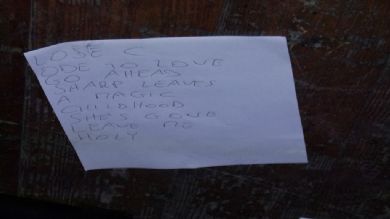 LOSE C
ODE TO LOVE
GO AHEAD
SHARP LEAVES
A MAGIC
CHILDHOOD
SHE'S GONE
LEAVE ME
HOLY